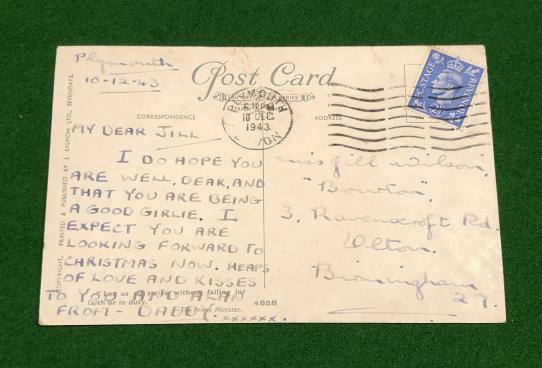 Plymouth
10-12-43
Post Card
CORRESPONDENCE
ADDRESS
PLYMOUTH
10 DEC
1943
POSTAGE
MY DEAR JILL
I DO HOPE YOU
ARE WELL, DEAR, AND
THAT YOU ARE BEING
A GOOD GIRLIE. I
EXPECT YOU ARE
LOOKING FORWARD TO
CHRISTMAS NOW. HEAPS
OF LOVE AND KISSES
TO YOU AND ALAN
FROM - DADDY. xxxxxx.
Miss Jill Wilson,
"Bourton,
3, Ravenscroft Rd.
Olton.
Birmingham
27.
without failing in
faith or in duty."
The Prime Minister.
4858
COPYRIGHT. PRINTED & PUBLISHED BY J. SALMON LTD., SEVENOAKS.